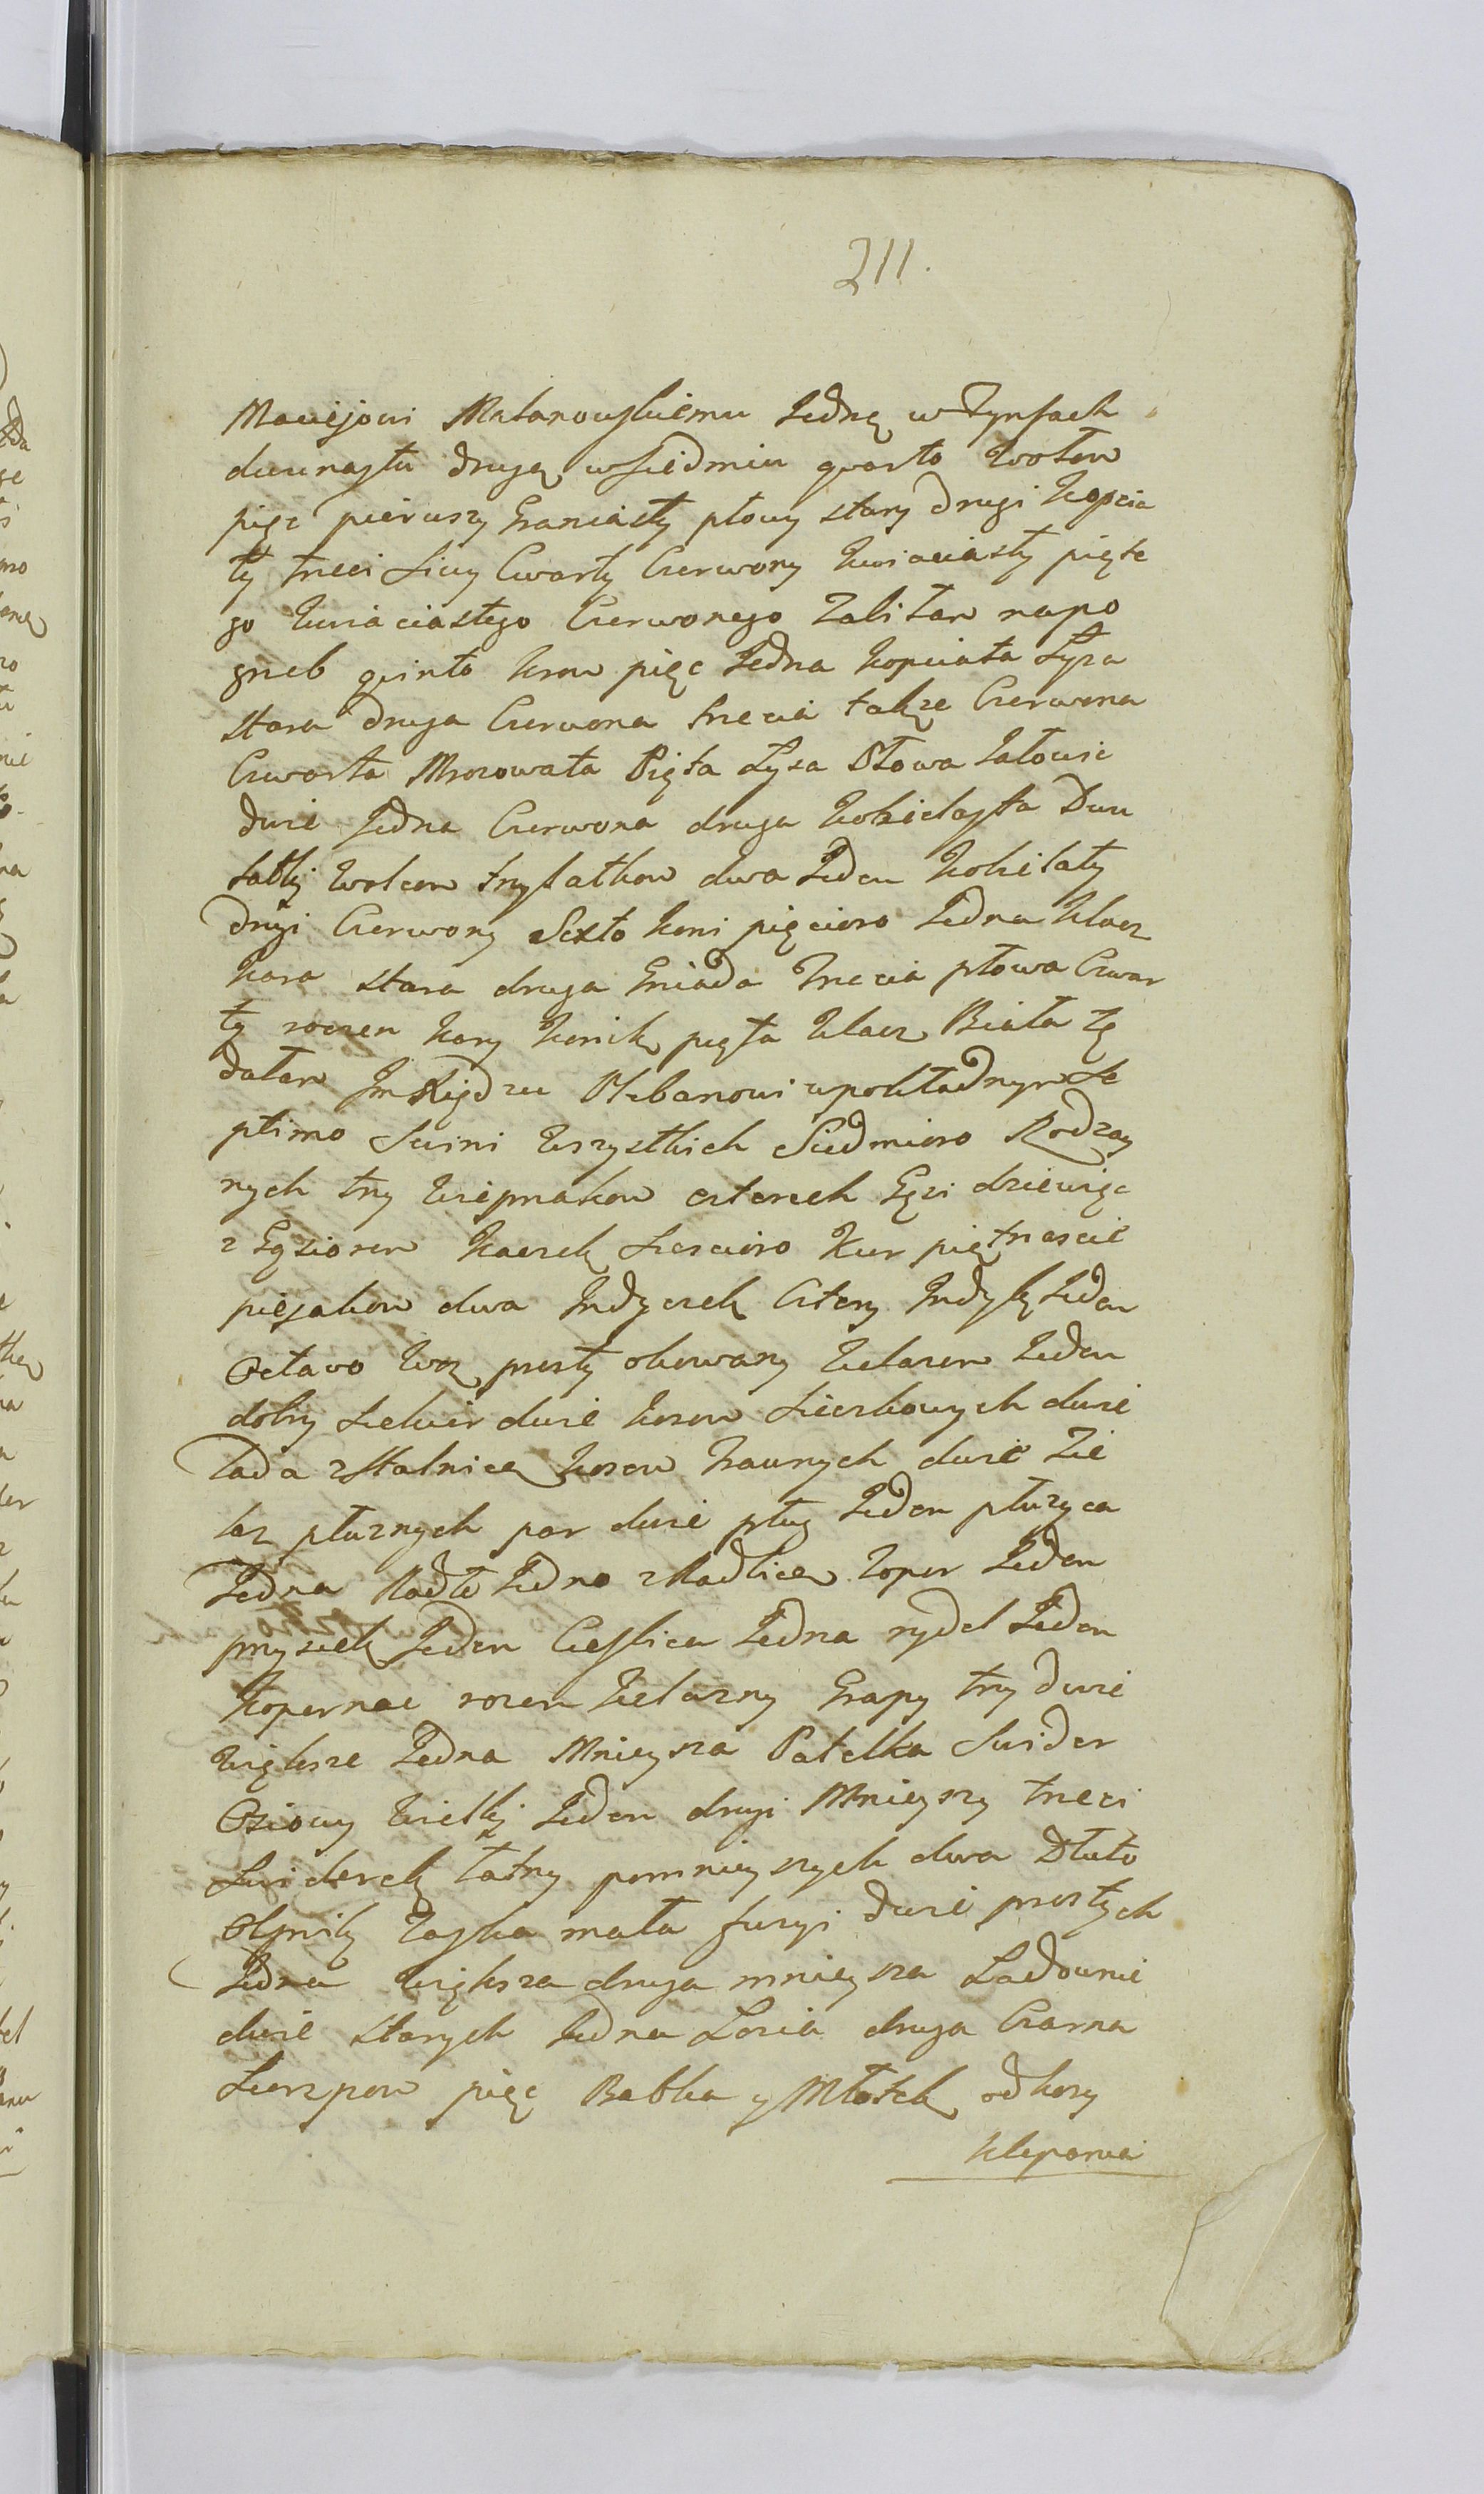 211.
Maciejowi Matanowskiemu Jednę w Tynfach
dwunastu drugą w Siedmiu qvarto Wołow
pięc pierwszy Graniasty płowy stary drugi Kopcia
ty trzeci Siwy Cwarty Czerwony Kwiaciasty piąte
go Kwiaciastego Czerwonego Zabiłam na po
grzeb qvinto krow pięc Jedna kopciata Łysa
stara druga Czerwona trzecia także Czerwona
Czwarta Mrozowata Piąta Łysa Płowa Jałowic
dwie Jedna Czerwona druga Kobielasta Dwu
latki Wolcow trzylatkow dwa Jeden Kobielaty
drugi Czerwony Sexto koni pięcioro Jedna Klacz
kara stara druga Gniada Trzecia płowa Czwar
ty roczen kary konik piąta Klacz Biała tę
dałam Jm Xiędzu Plebanowi w pokładnym Se
ptimo Swini Wszystkich Siedmioro Rodzay
nych trzy Wieprzakow czterech Gęsi dziewięc
z Gęsiorem Kaczek Szescioro Kur piętnascie
piejakow dwa Jndyczek Cztery Jndyk Jeden
Octavo Woz prosty okowany Zelazem Jeden
dobry Siekier dwie kosow Sieczkowych dwie
Lada z Stalnicą kosow Trawnych dwie Zie
laz płuznych par dwie pług Jeden płuzyca
Jedna Radło Jedno z Radlicą Topor Jeden
przysiek Jeden Cieslica Jedna rydel Jeden
Kopernac rozen Zelazny Grapy trzy dwie
Większe Jedna Mnieysza Patelka Swider
Osiowy Wielki Jeden drugi Mnieyszy trzeci
Swiderek łatny pomnieyszych dwa Dłuto
Osnik mała fuzyi dwie prostych
Jedna większa druga mnieysza Ładownie
dwie starych Jedna Łosia druga Czarna
Sierzpow pięc Babka y Młotek od kosy
klepania